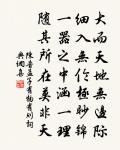 大而天地無邊際
細入無倫極眇綿
一器之中涵一理
隨其所在莫非天
陳普孟子有物有則